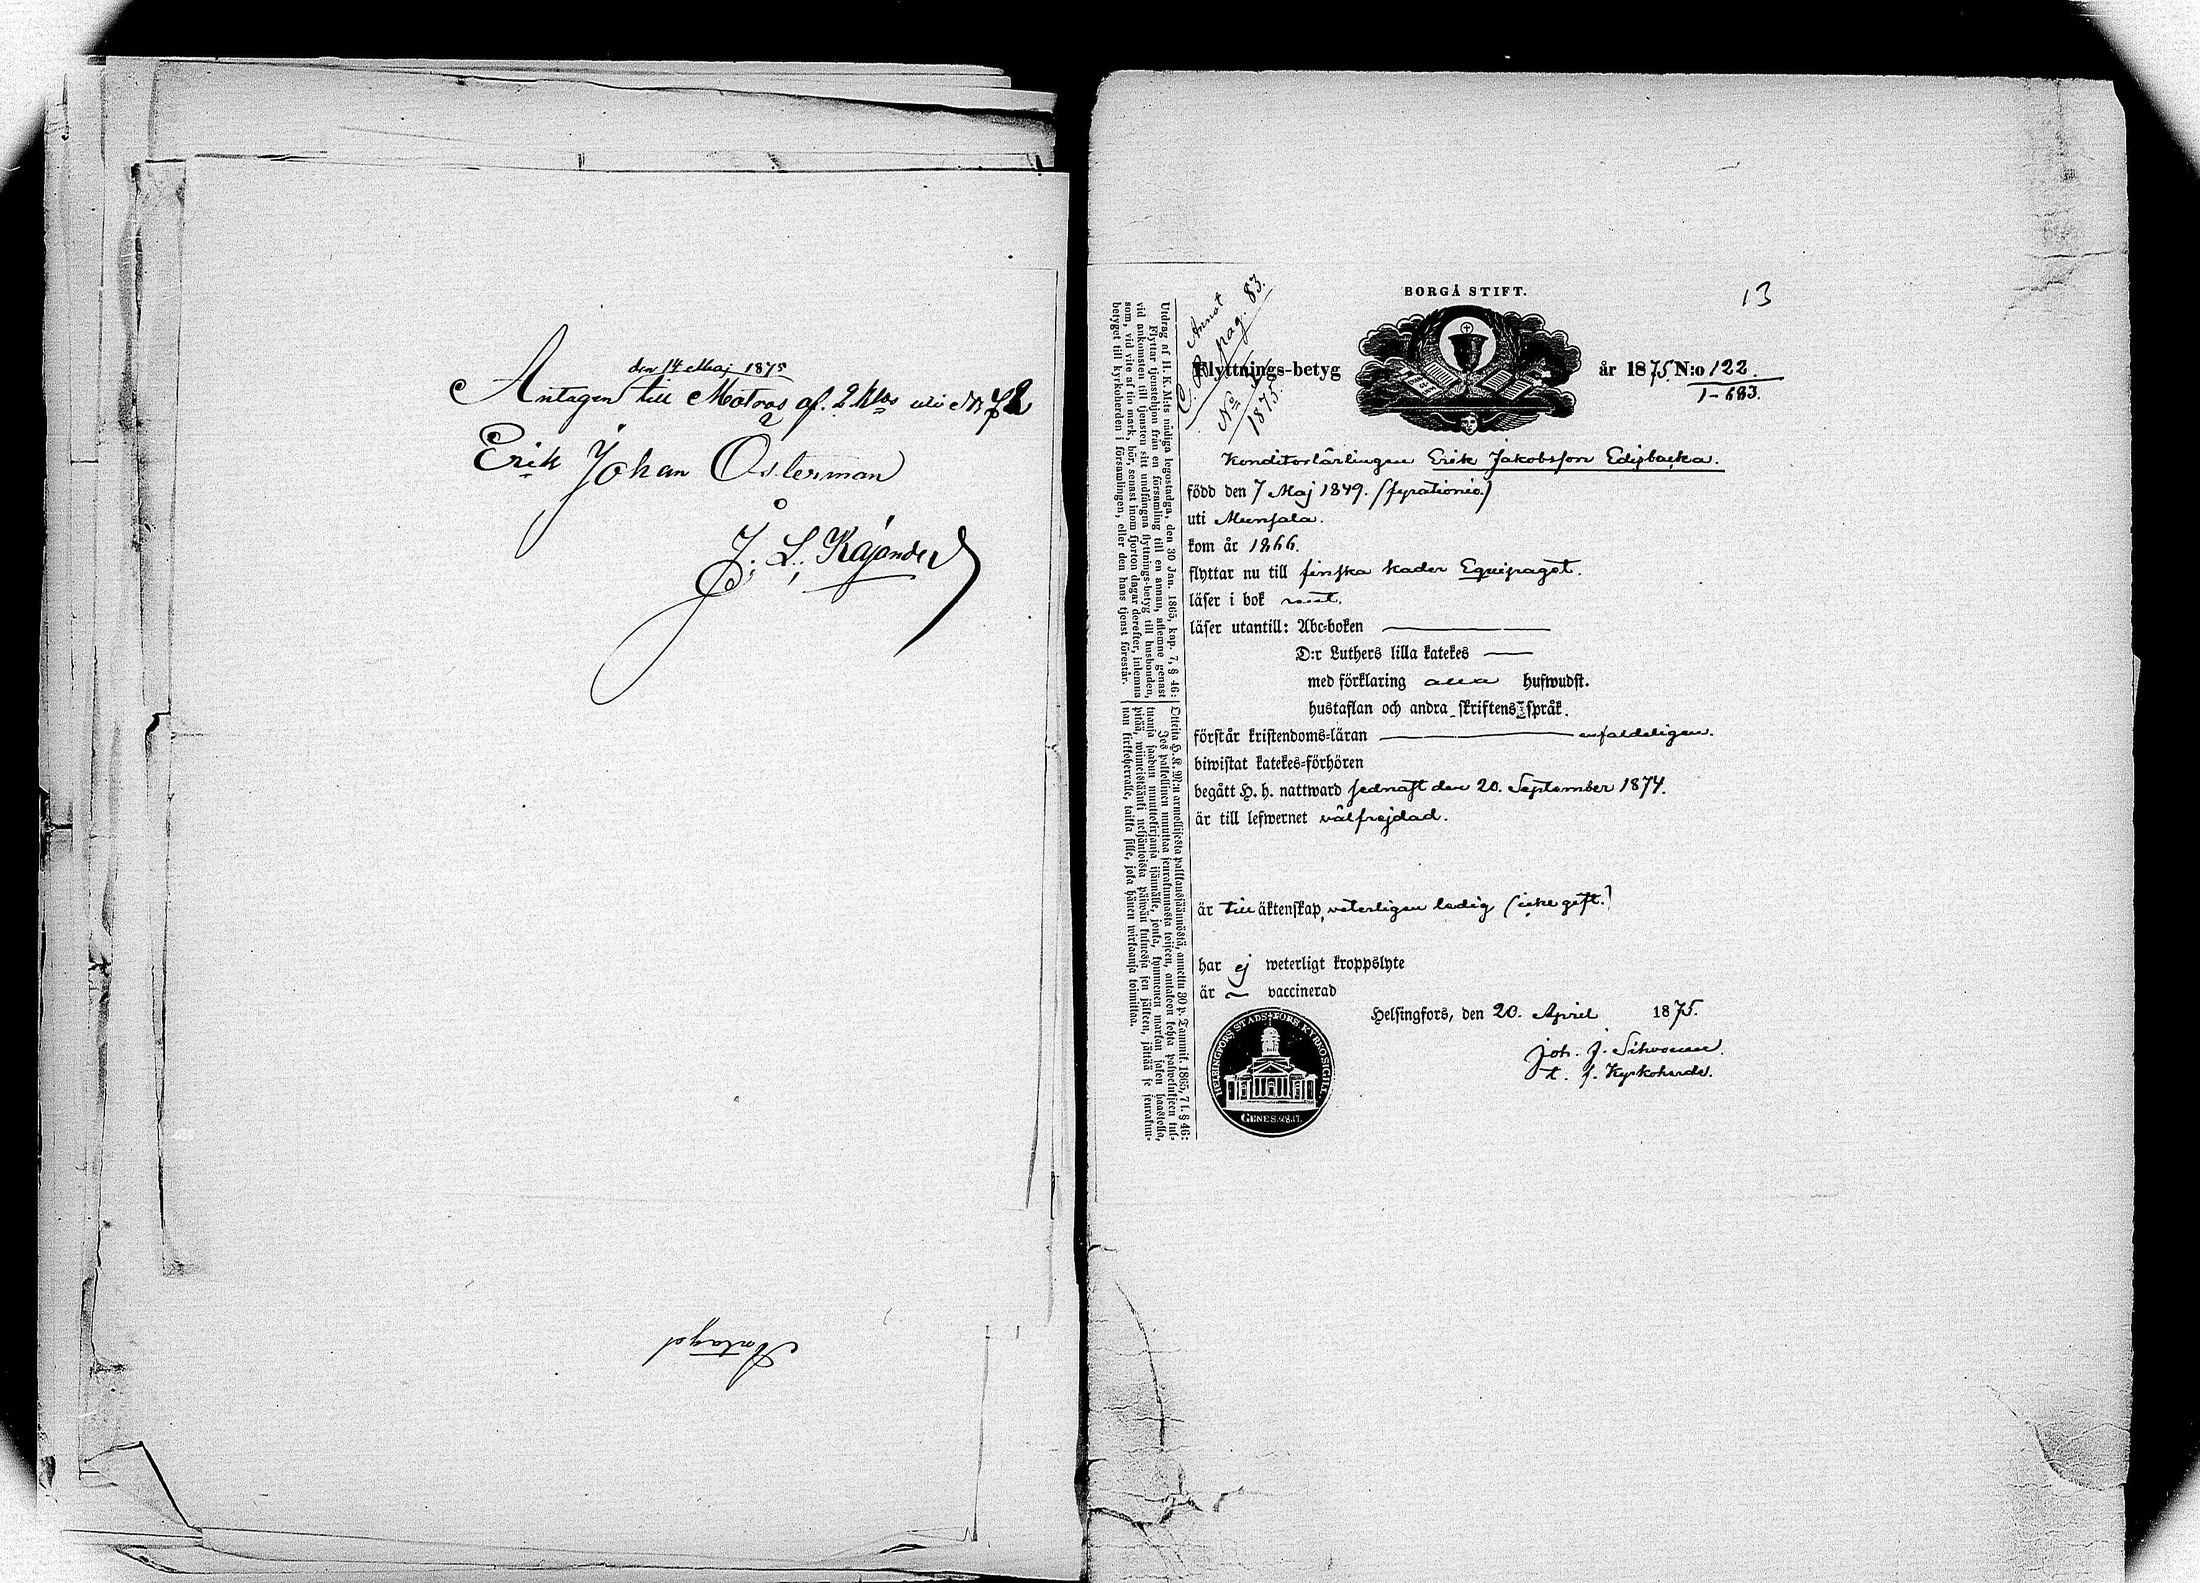 den 14 Maj 1875
Antagen till Matros af. 2 Klas
Erik Johan Österman
J. L. Kajander
Antaget
BORGÅ STIFT.
13
Annot
C. B. pag. 83.
No
1875.
Flyttnings-betyg år 1875. N:o 122.
1-683.
Konditorlärlingen Erik Jakobsson Edisbacka.
född den 7 Maj 1849. (fyrationio.)
uti Munsala.
kom år 1866.
flyttar nu till finska kader Equipaget.
läser i bok rent.
läser utantill: Abc-boken
D:r Luthers lilla katekes
med förklaring alla hufwudst.
hustaflan och andra skriftens språk.
förstår kristendoms-läran enfaldeligen.
biwistat katekes-förhören
begått H. H. nattward sednast den 20. September 1874.
är till lefwernet välfrejdad.
är till äktenskap, veterligen ledig (icke gift.)
har ej weterligt kroppslyte
är vaccinerad
Helsingfors, den 20. April 1875.
Joh. J.
t. f. Kyrkoherde.
HELSINGFORS STADS FÖRS. KYRKOSIGILL
GENES. 28.17.
Utdrag af H. K. M:ts nådiga legostadga, den 30 Jan. 1865, kap. 7, § 46:
Flyttar tjenstehjon från en församling till en annan, aflemne genast
vid ankomsten till tjensten sitt undfångna flyttnings-betyg till husbonden,
som, vid vite af tio mark, bör, senast inom fjorton dagar derefter, inlemna
betyget till kyrkoherden i församlingen, eller den hans tjenst förestår.
Otteita H. K. M:n armollisesta palkkaussäännöstä, annettu 30 p. Tammik. 1865, 7 l. § 46:
Jos palkollinen muuttaa seurakunnasta toiseen, antakoon kohta palwelukseen tul-
tuansa saadun muuttokirjansa isännälle, jonka, kymmenen markan sakon haastolla,
pitää, wiimeistäänki neljäntoista päiwän kuluessa sen jälkeen, jättää se seurakun-
nan kirkkoherralle, taikka sille, joka hänen wirkaansa toimittaa.